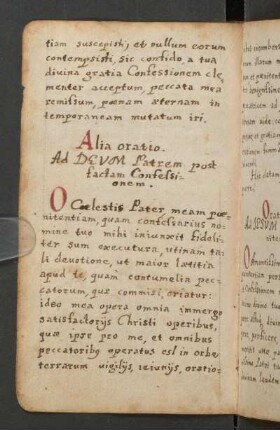 tiam suscepisti, et nullum eorum
contempsisti, sic confido, a tua
divina gratia Confessionem cle,,
menter acceptum, peccata mea
remissum, poenam æternam in
temporaneam mutatum iri.
Alia oratio.
Ad DEVM Patrem post
factam Confessi-
onem.
O Cœlestis Pater, meam pœ-
nitentiam, quam confessarius no-
mine tuo mihi iniunxit fideli-
ter sum executurus, utinam ta-
li devotione, ut maior lætitia
apud te, quam contumelia pec-
catorum, quæ commisi, oriatur:
ideo mea opera omnia immergo
satisfactorijs Christi operibus,
quæ ipse pro me, et omnibus
peccatoribus operatus est in orbe
terrarum vigilijs, ieiunijs, oratio-